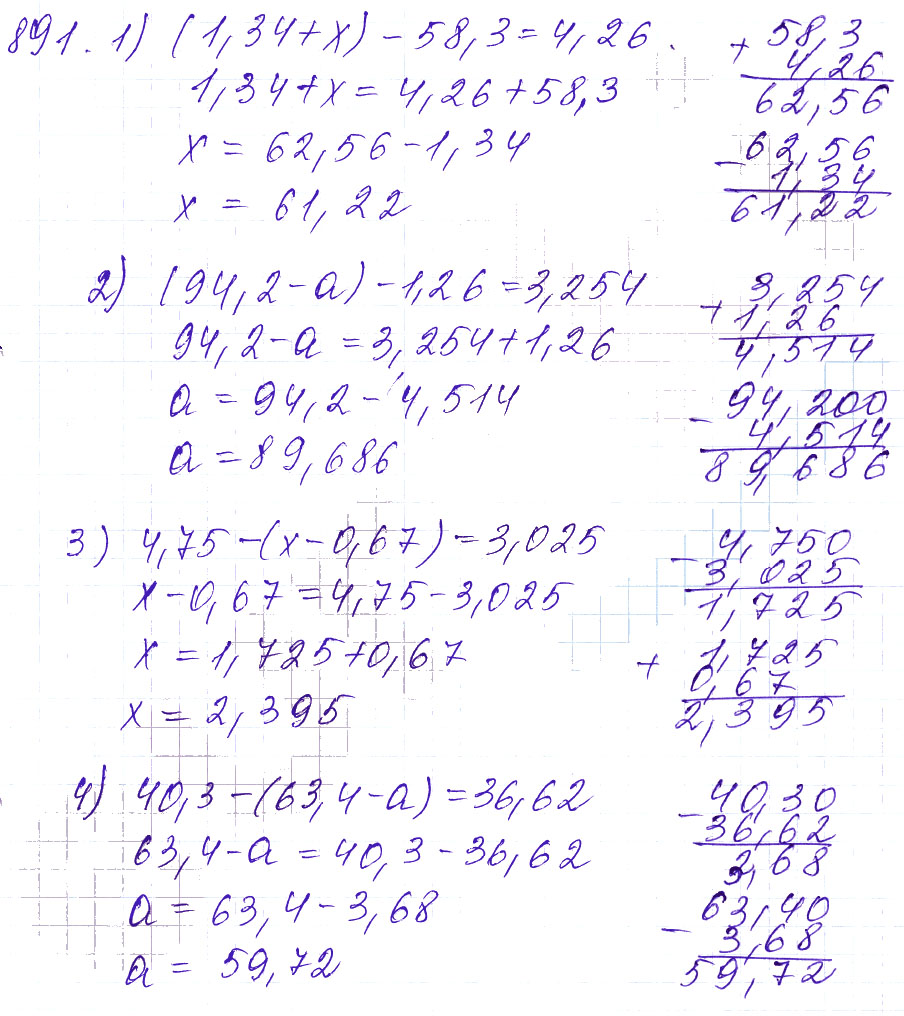 891. 1) (1,34+x) - 58,3 = 4,26.
1,34+x = 4,26+58,3
x = 62,56-1,34
x = 61,22
+ 58,3
4,26
62,56
- 62,56
1,34
61,22
2) (94,2-a) - 1,26 = 3,254
94,2-a = 3,254+1,26
a = 94,2 - 4,514
a = 89,686
+ 3,254
1,26
4,514
- 94,200
4,514
89,686
3) 4,75 - (x - 0,67) = 3,025
x - 0,67 = 4,75 - 3,025
x = 1,725+0,67
x = 2,395
- 4,750
3,025
1,725
+ 1,725
0,67
2,395
4) 40,3 - (63,4-a) = 36,62
63,4-a = 40,3 - 36,62
a = 63,4 - 3,68
a = 59,72
- 40,30
36,62
3,68
- 63,40
3,68
59,72